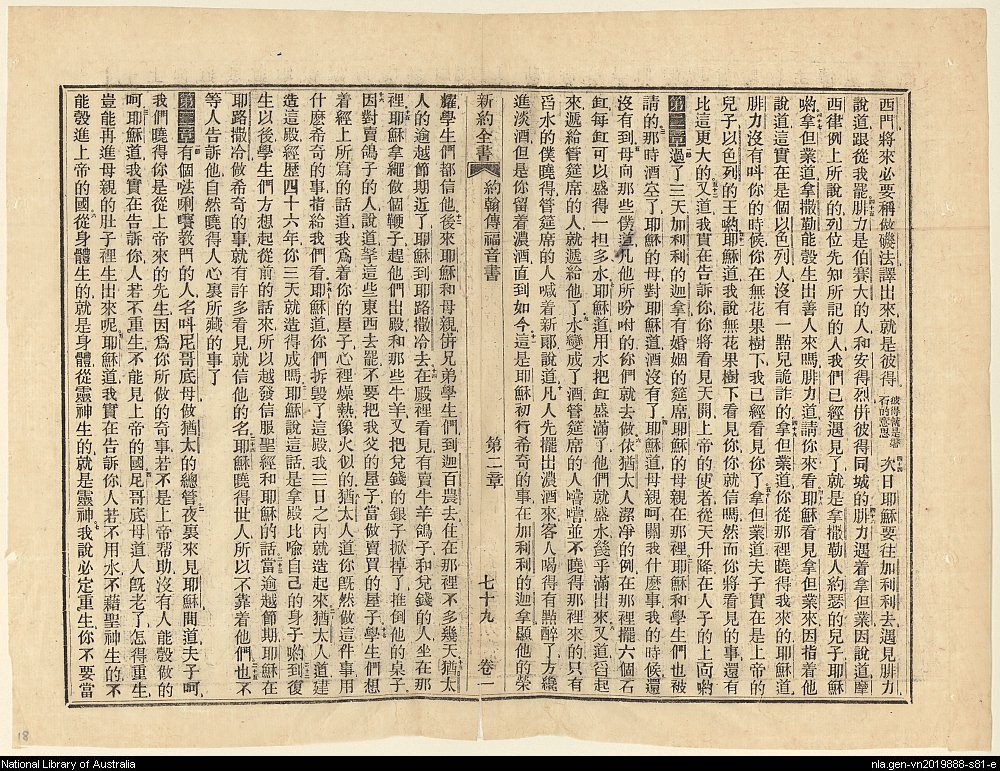 西門將來必要稱做磯法譯出來就是彼得彼得就是磐石的意思次日耶穌要往加利利去遇見腓力
說道跟從我罷腓力是伯賽大的人和安得烈併彼得同城的腓力遇着拿但業因說道摩
西律例上所說的列位先知所記的人我們已經遇見了就是拿撒勒人約瑟的兒子耶穌
喲拿但業道拿撒勒能彀生出善人來嗎腓力道請你來看耶穌看見拿但業來因指着他
說道這實在是個以色列人沒有一點兒詭詐的拿但業道你從那裡曉得我來的耶穌道
腓力沒有呌你的時候你在無花果樹下我已經看見你了拿但業道夫子實在是上帝的
兒子以色列的王喲耶穌道我說無花果樹下看見你你就信嗎然而你將看見的事還有
比這更大的又道我實在告訴你你將看見天開上帝的使者從天升降在人子的上面喲
第二章過了三天加利利的迦拿有婚姻的筵席耶穌的母親在那裡耶穌和學生們也被
請的那時酒完了耶穌的母對耶穌道酒沒有了耶穌道母親呵關我什麼事我的時候還
沒有到母向那些僕道凡他所吩咐的你們就去做依猶太人潔淨的例在那裡擺六個石
缸每缸可以盛得一担多水耶穌道用水把缸盛滿了他們就盛水纔乎滿出來又道舀起
來遞給管筵席的人就遞給他了水變成了酒管筵席的人嚐嚐並不曉得那裡來的只有
舀水的僕曉得管筵席的人喊着新郎說道凡人先擺出濃酒來客人喝得有點醉了方纔
進淡酒但是你留着濃酒直到如今這是耶穌初行希奇的事在加利利的迦拿顯他的榮
新約全書 約翰傳福音書 第二章 七十九 卷一
耀學生們都信他後來耶穌和母親併兄弟學生們到迦百農去住在那裡不多幾天猶太
人的逾越節期近了耶穌到耶路撒冷去在殿裡看見有賣牛羊鴿子和兌錢的人坐在那
裡耶穌拿繩做個鞭子趕他們出殿和那些牛羊又把兌錢的銀子掀掉了推倒他的桌子
因對賣鴿子的人說道拏這些東西去罷不要把我父的屋子當做賣買的屋子學生們想
着經上所寫的話道我爲着你的屋子心裡燥熱像火似的猶太人道你旣然做這件事用
什麼希奇的事指給我們看耶穌道你們拆毀了這殿我三日之內就造起來猶太人道建
造這殿經歷四十六年你三天就造得成嗎耶穌說這話是拿殿比喻自己的身子喲到復
生以後學生們方想起從前的話來所以越發信服聖經和耶穌的話當逾越節期耶穌在
耶路撒冷做希奇的事就有許多看見就信他的名耶穌曉得世人所以不靠着他們也不
等人告訴他自然曉得人心裏所藏的事了
第三章有個法唎㘔教門的人名呌尼哥底母做猶太的總管夜裏來見耶穌間道夫子呵
我們曉得你是從上帝來的先生因爲你所做的奇事若不是上帝帮助沒有人能彀做的
耶穌道我實在告訴你人若不重生不能見上帝的國尼哥底母道人旣老了怎得重生
豈能再進母親的肚子裡生出來呢耶穌道我實在告訴你人若不用水不藉聖神生的不
能彀進上帝的國從身體生的就是身體從靈神生的就是靈神我說必定重生你不要當
18
National Library of Australia
nla.gen-vn2019888-s81-e